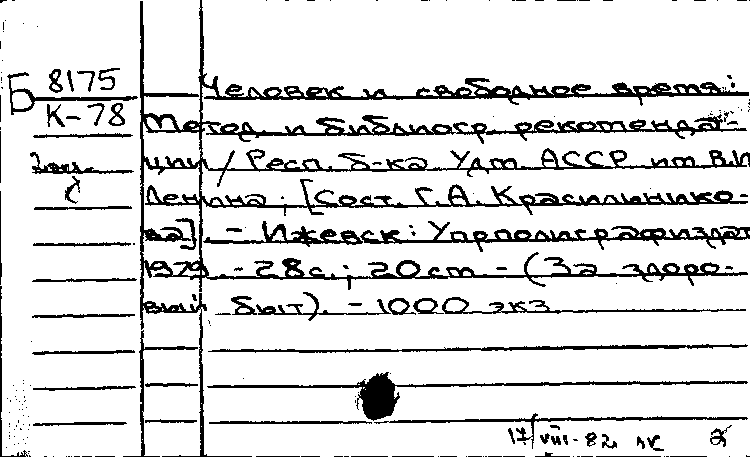 Б 8175
К-78
Человек и свободное время:
Метод. и библиогр. рекоменда-
ции / Респ. б-ка Удм. АССР им В.И
Ленина ; [Сост. Г.А. Красильнико-
ва]. - Ижевск: Упрполиграфиздат
1979. - 28с.; 20см - (За здоро-
вый быт). - 1000 экз
17/VIII-82
2